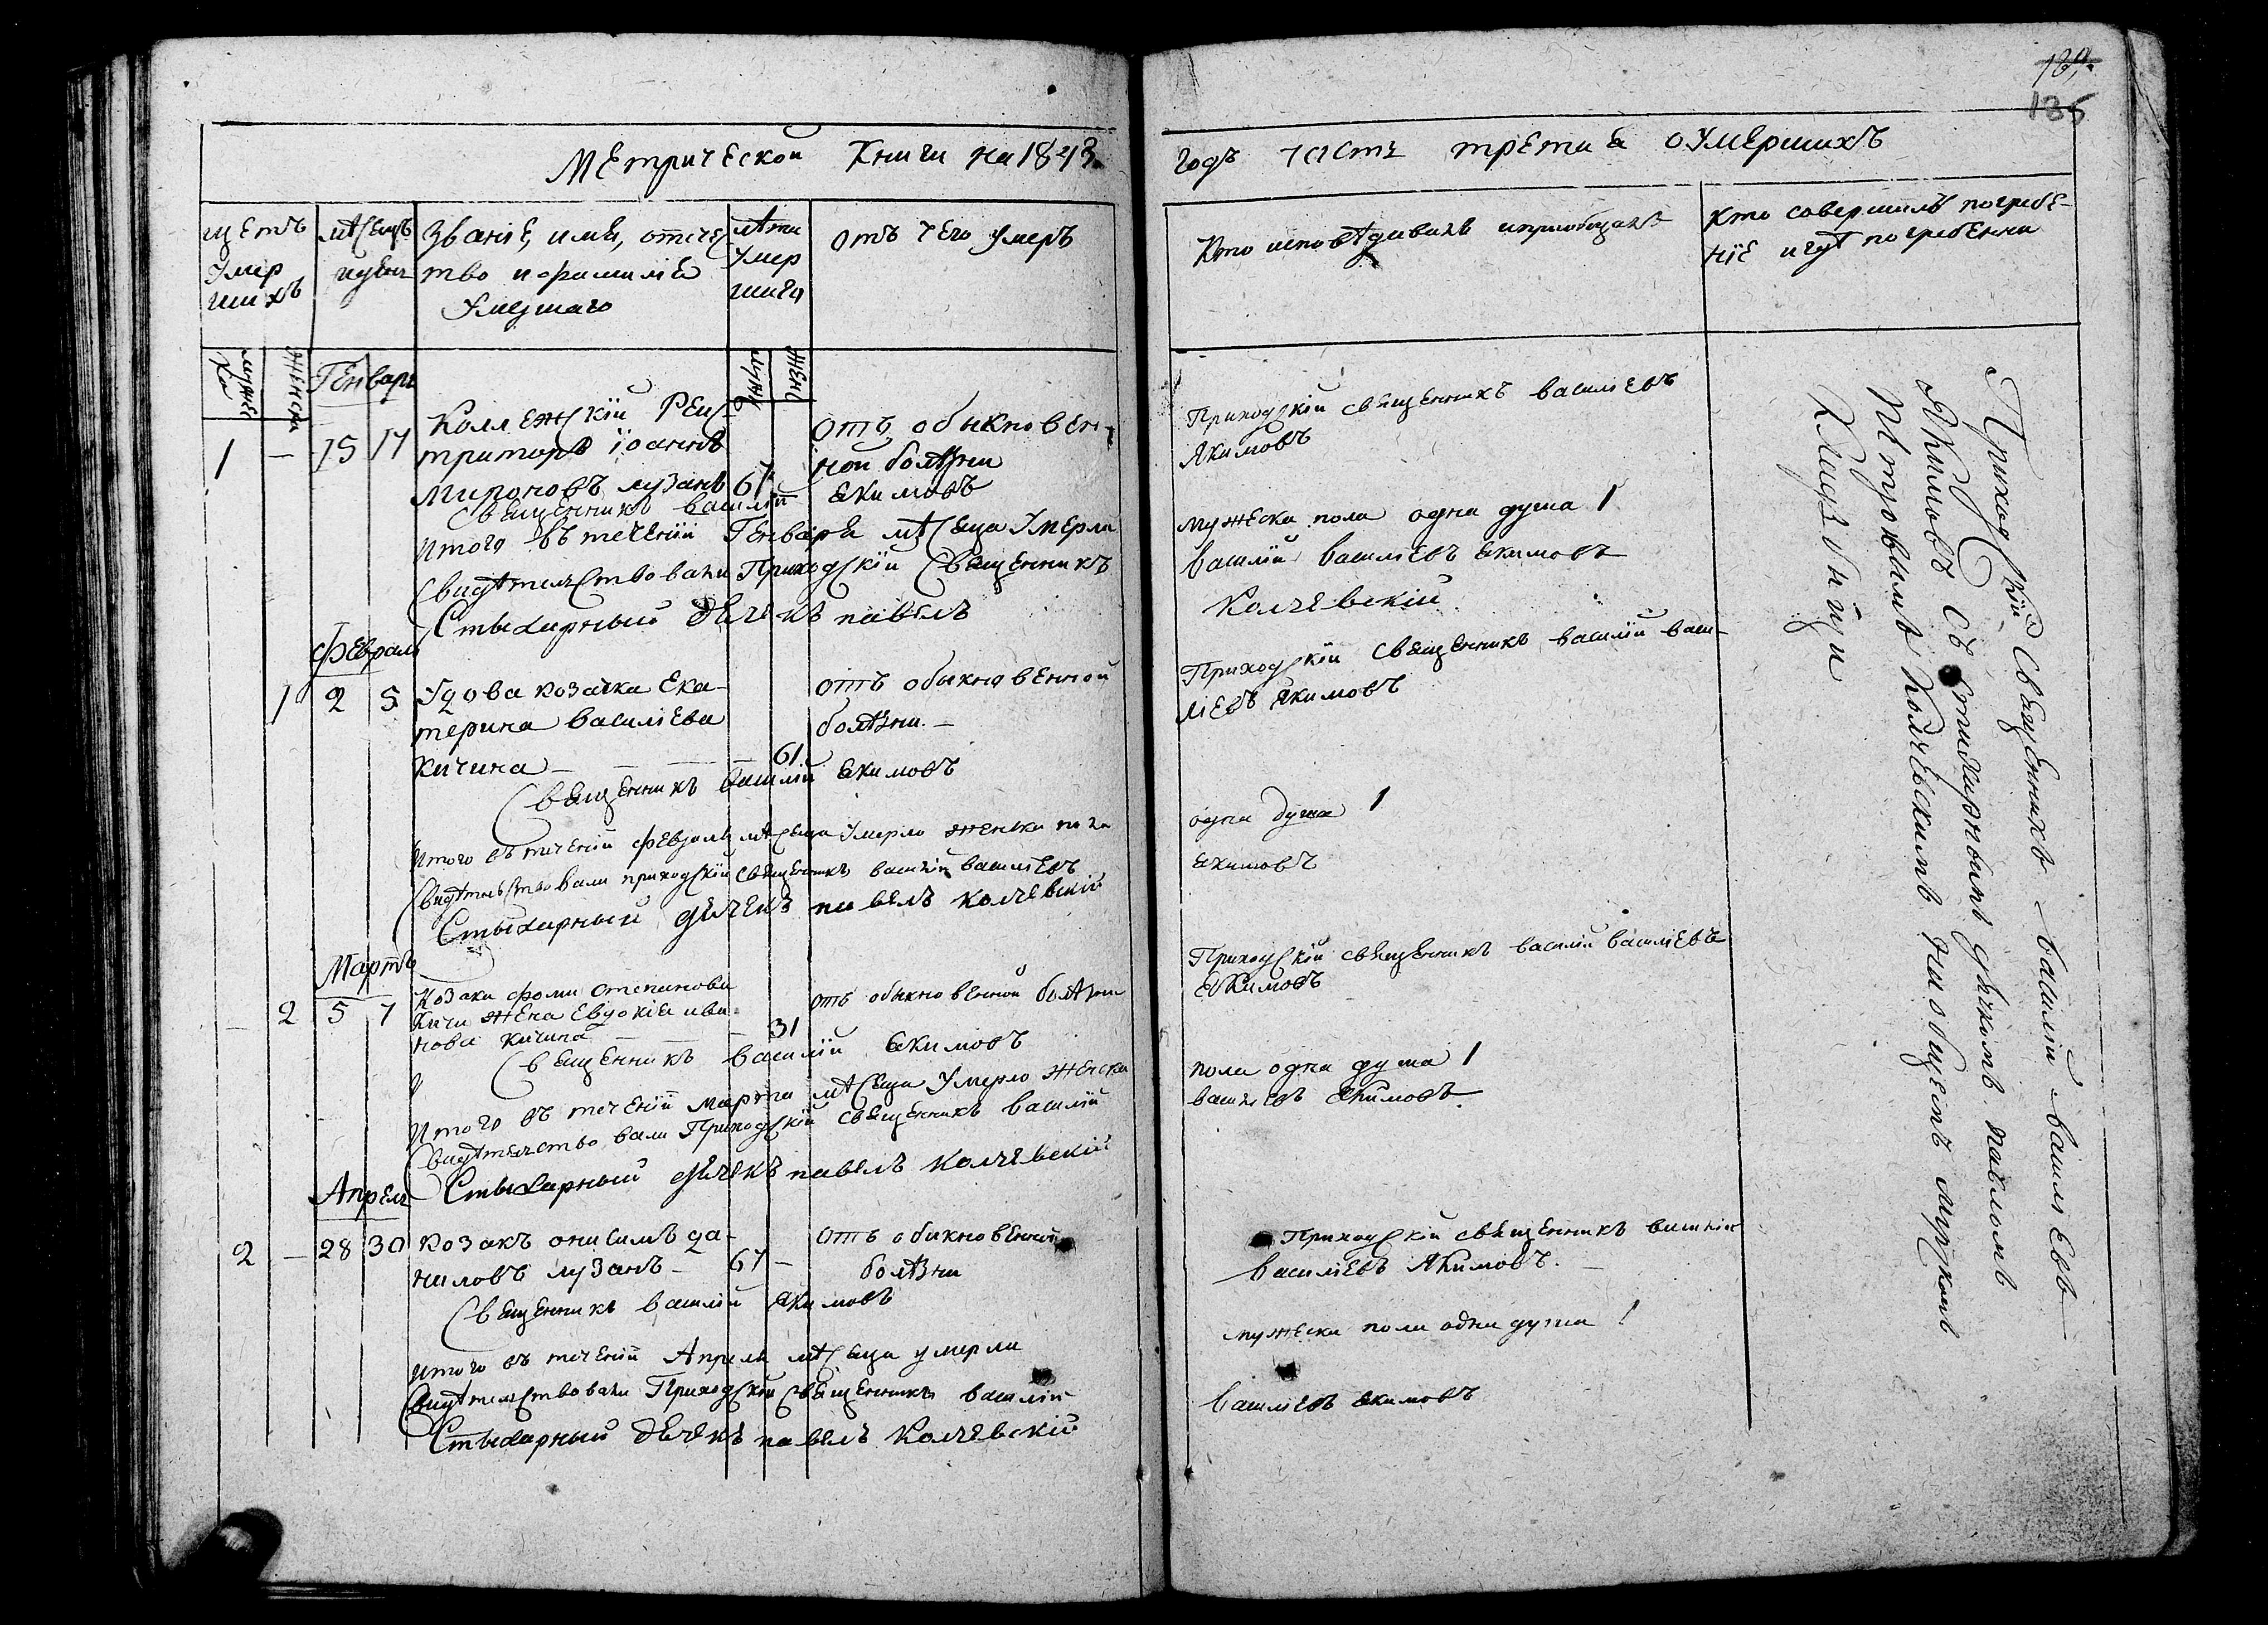 189.
135
Метрической Книги на 1843.
годъ часть третиа о Умершихъ
щетъ Умер шихъ
мѣсецъ идень
Званіе, имя, отечес
тво и фамилія
Умершаго
лѣта Умер шаго
отъ чего Умеръ
Кто исповѣдивалъ иприобщалъ
Кто совершилъ погребе-
ніе игдѣ погребенни
мужеска
женска
Генварь
мужес
женс
1 — 15 17
Коллежскій Реис
траторъ Іоаннъ
Мироновъ лузанъ 67
отъ обыкновен-
ной болѣзни
Священникъ василій Якимовъ
Приходскій священникъ василіевъ
Якимовъ
итого въ теченіи Генваря мѣсеца Умерли
мужеска пола одна душа 1
Свидѣтельствовали Приходскій Священникъ
василій василіевъ якимовъ
Стыхарный дячекъ павелъ
Колчевскій
Февраль
1 2 5 Удова козачка Ека-
терина василіева
Кичина — 61
отъ обыкновенной
болѣзни. —
Приходскій священникъ василій васи-
ліевъ якимовъ
Священникъ василій якимовъ
Итого въ теченіи февраля мѣсеца Умерло женска пола
одна душа 1
Свидѣтельствовали приходскій священникъ василій василіевъ
якимовъ
Стыхарный дячекъ павелъ колчевскій
Мартъ
2 5 7 Козака фомы степанова
Кичи жена Евдокія ива-
нова кичина — 31
отъ обыкновенной болѣзни
Приходскій священникъ василій василіевъ
Якимовъ
Священникъ василій якимовъ
Итого въ теченіи марта мѣсеца Умерло женска
пола одна душа 1
Свидѣтельствовали Приходскій священникъ василій
василіевъ Якимовъ.
Стыхарный дячекъ павелъ колчевскій
Апрель
2 — 28 30 козакъ онисимъ да-
ниловъ лузанъ — 67 —
отъ обыкновенной
болѣзни
Приходскій священникъ василій
василіевъ Якимовъ. —
Священникъ василій якимовъ
итого въ теченіи Апреля мѣсеца умерли
мужеска пола одна душа 1
Свидѣтельствовали Приходскій священникъ василій
василіевъ якимовъ
Стыхарный дячекъ павелъ Колчевскій
Приходскій Священникъ василій василіевъ
Якимовъ Съ стихарнымъ дячкомъ павломъ
Колчевскимъ
Кладбищи